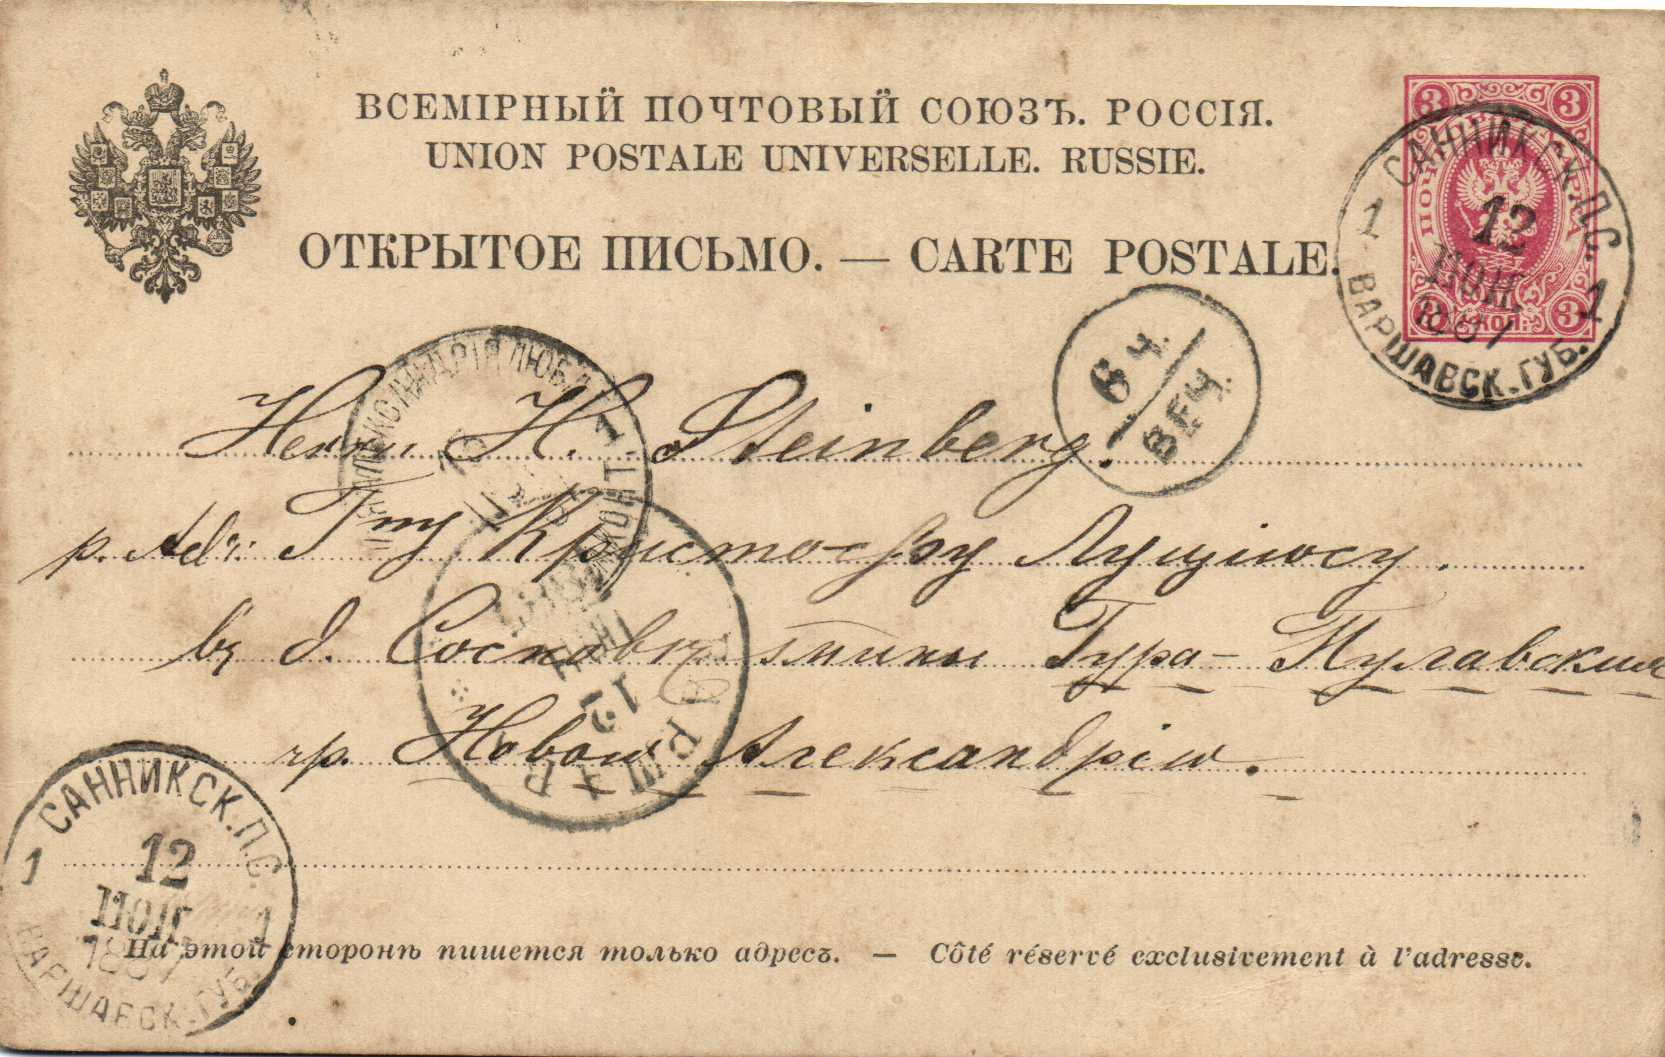 ВСЕМІРНЫЙ ПОЧТОВЫЙ СОЮЗЪ. РОССІЯ.
UNION POSTALE UNIVERSELLE. RUSSIE.
ОТКРЫТОЕ ПИСЬМО. — CARTE POSTALE.
3 3
3 КОП. 3
САННИКСК. П. С.
1 12 1
ІЮЛ.
1887
ВАРШАВСК. ГУБ.
6 Ч.
ВЕЧ.
Herrn H. Steinberg.
p. Adr. Гну Кристофу Лущіюсу.
въ д. Сосновкъ гмины Гура-Пулавская
чр. Новой Александріи.
12
САННИКСК. П. С.
1 12 1
ІЮЛ.
1887
ВАРШАВСК. ГУБ.
На этой сторонѣ пишется только адресъ. — Côté réservé exclusivement à l'adresse.